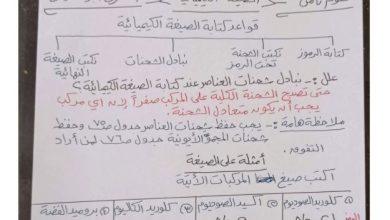 قواعد كتابة الصيغة الكيميائية
كتابة الرموز
تكتب الشحنة تحت الرمز
تبادل الشحنات
تكتب الصيغة النهائية
علل :- تبادل شحنات العناصر عند كتابة الصيغة الكيمائية ؟
حتى تصبح الشحنة الكلية على المركب صفراً لانه اي مركب
يجب أن يكون متعادل الشحنة .
ملاحظة هامة :- يجب حفظ شحنات العناصر جدول ص٧٥ وحفظ
شحنات المجموعة الأيونية جدول ص٧٦ لمن أراد
التفوق .
أمثلة على الصيغة
اكتب صيغ المركبات الآتية
كلوريد الصوديوم
أكسيد الصوديوم
كلوريد الكالسيوم
بروميد الفضة